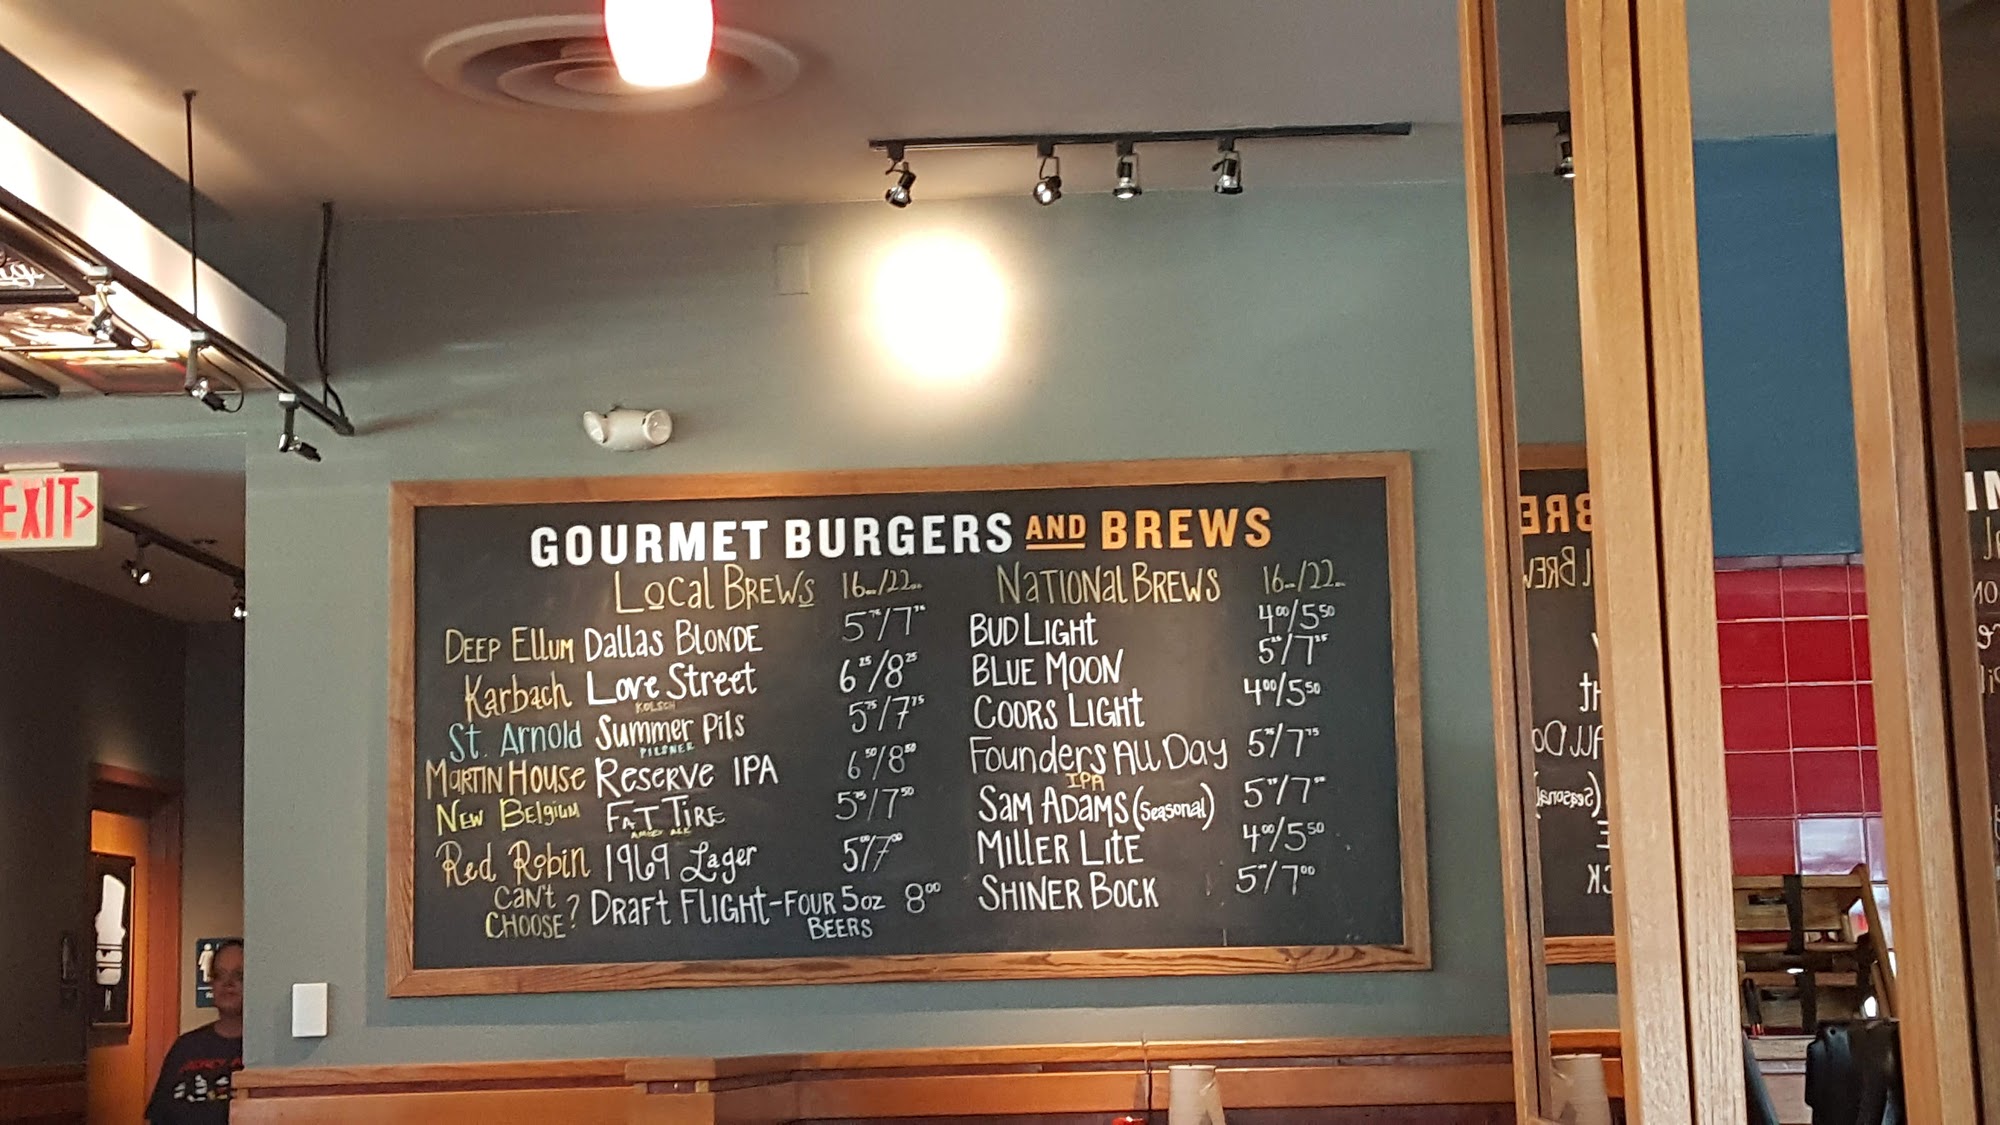 EXIT>
GOURMET BURGERS AND BREWS
LOCAL BREWS 16oz/22oz
DEEP ELLUM DALLAS BLONDE 5⁷⁵/7⁷⁵
Karbach Love Street 6²⁵/8²⁵
KOLSCH
St. Arnold Summer Pils 5⁷⁵/7⁷⁵
PILSNER
MARTIN HOUSE RESERVE IPA 6⁵⁰/8⁵⁰
NEW BELGIUM FAT TIRE
AMBER ALE
Red Robin 1969 Lager 5⁰⁰/7⁰⁰
CAN'T CHOOSE? DRAFT FLIGHT-FOUR 5oz 8⁰⁰
BEERS
NATIONAL BREWS 16oz/22oz
BUD LIGHT 4⁰⁰/5⁵⁰
BLUE MOON
COORS LIGHT 4⁰⁰/5⁵⁰
Founders All Day 5⁷⁵/7⁷⁵
IPA
SAM ADAMS (Seasonal)
MILLER LITE 4⁰⁰/5⁵⁰
SHINER BOCK